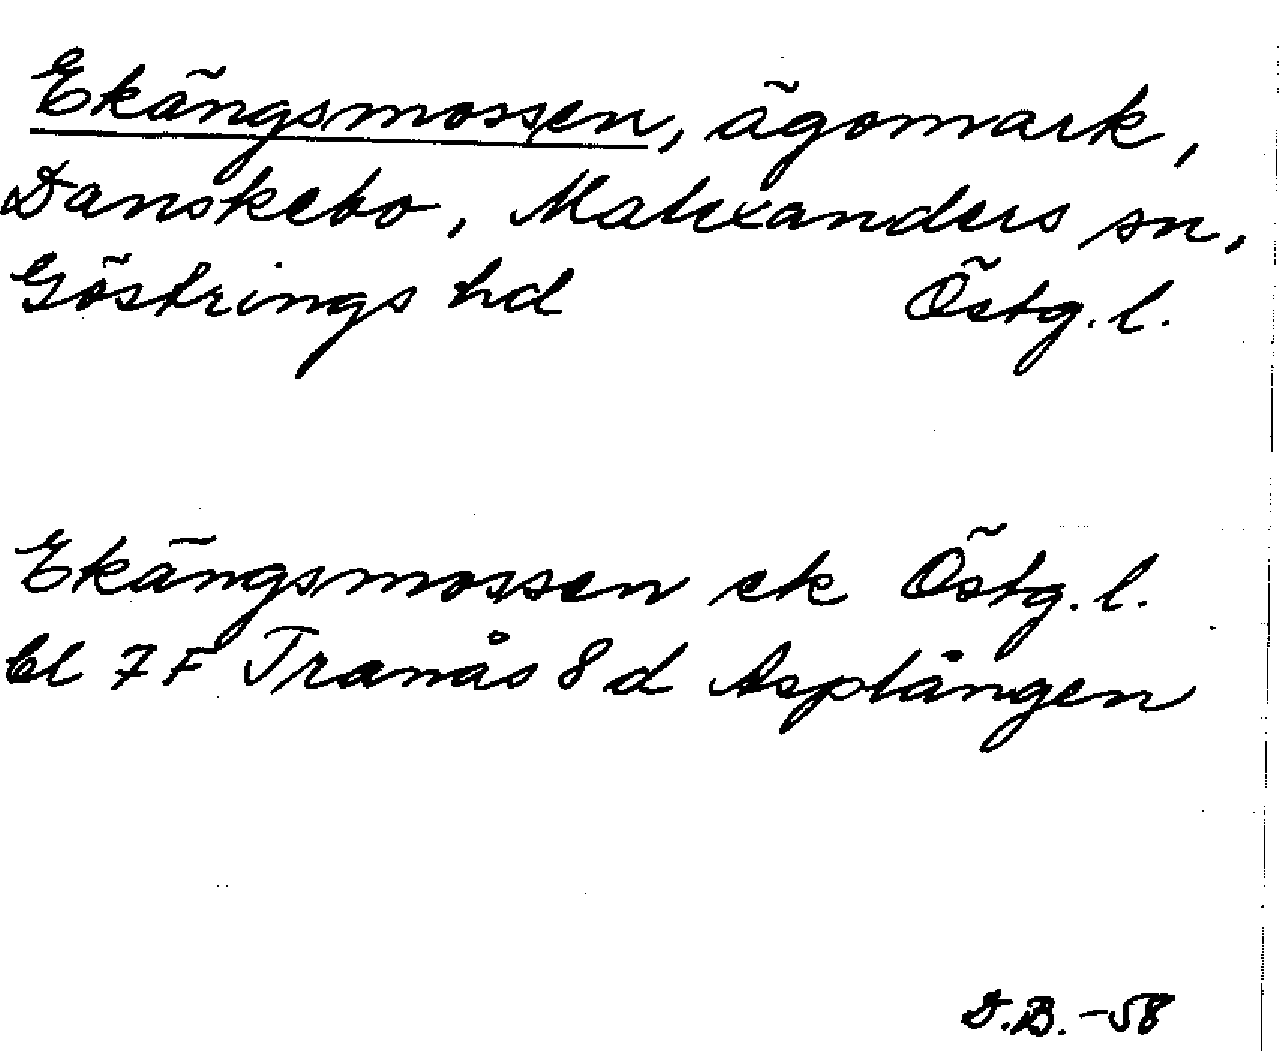 Ekängsmossen, ägomark,
Danskebo, Malexanders sn,
Göstrings hd Östg. l.
Ekängsmossen ek Östg. l.
bl 7 F Tranås 8 d Asplången
D.B. -58